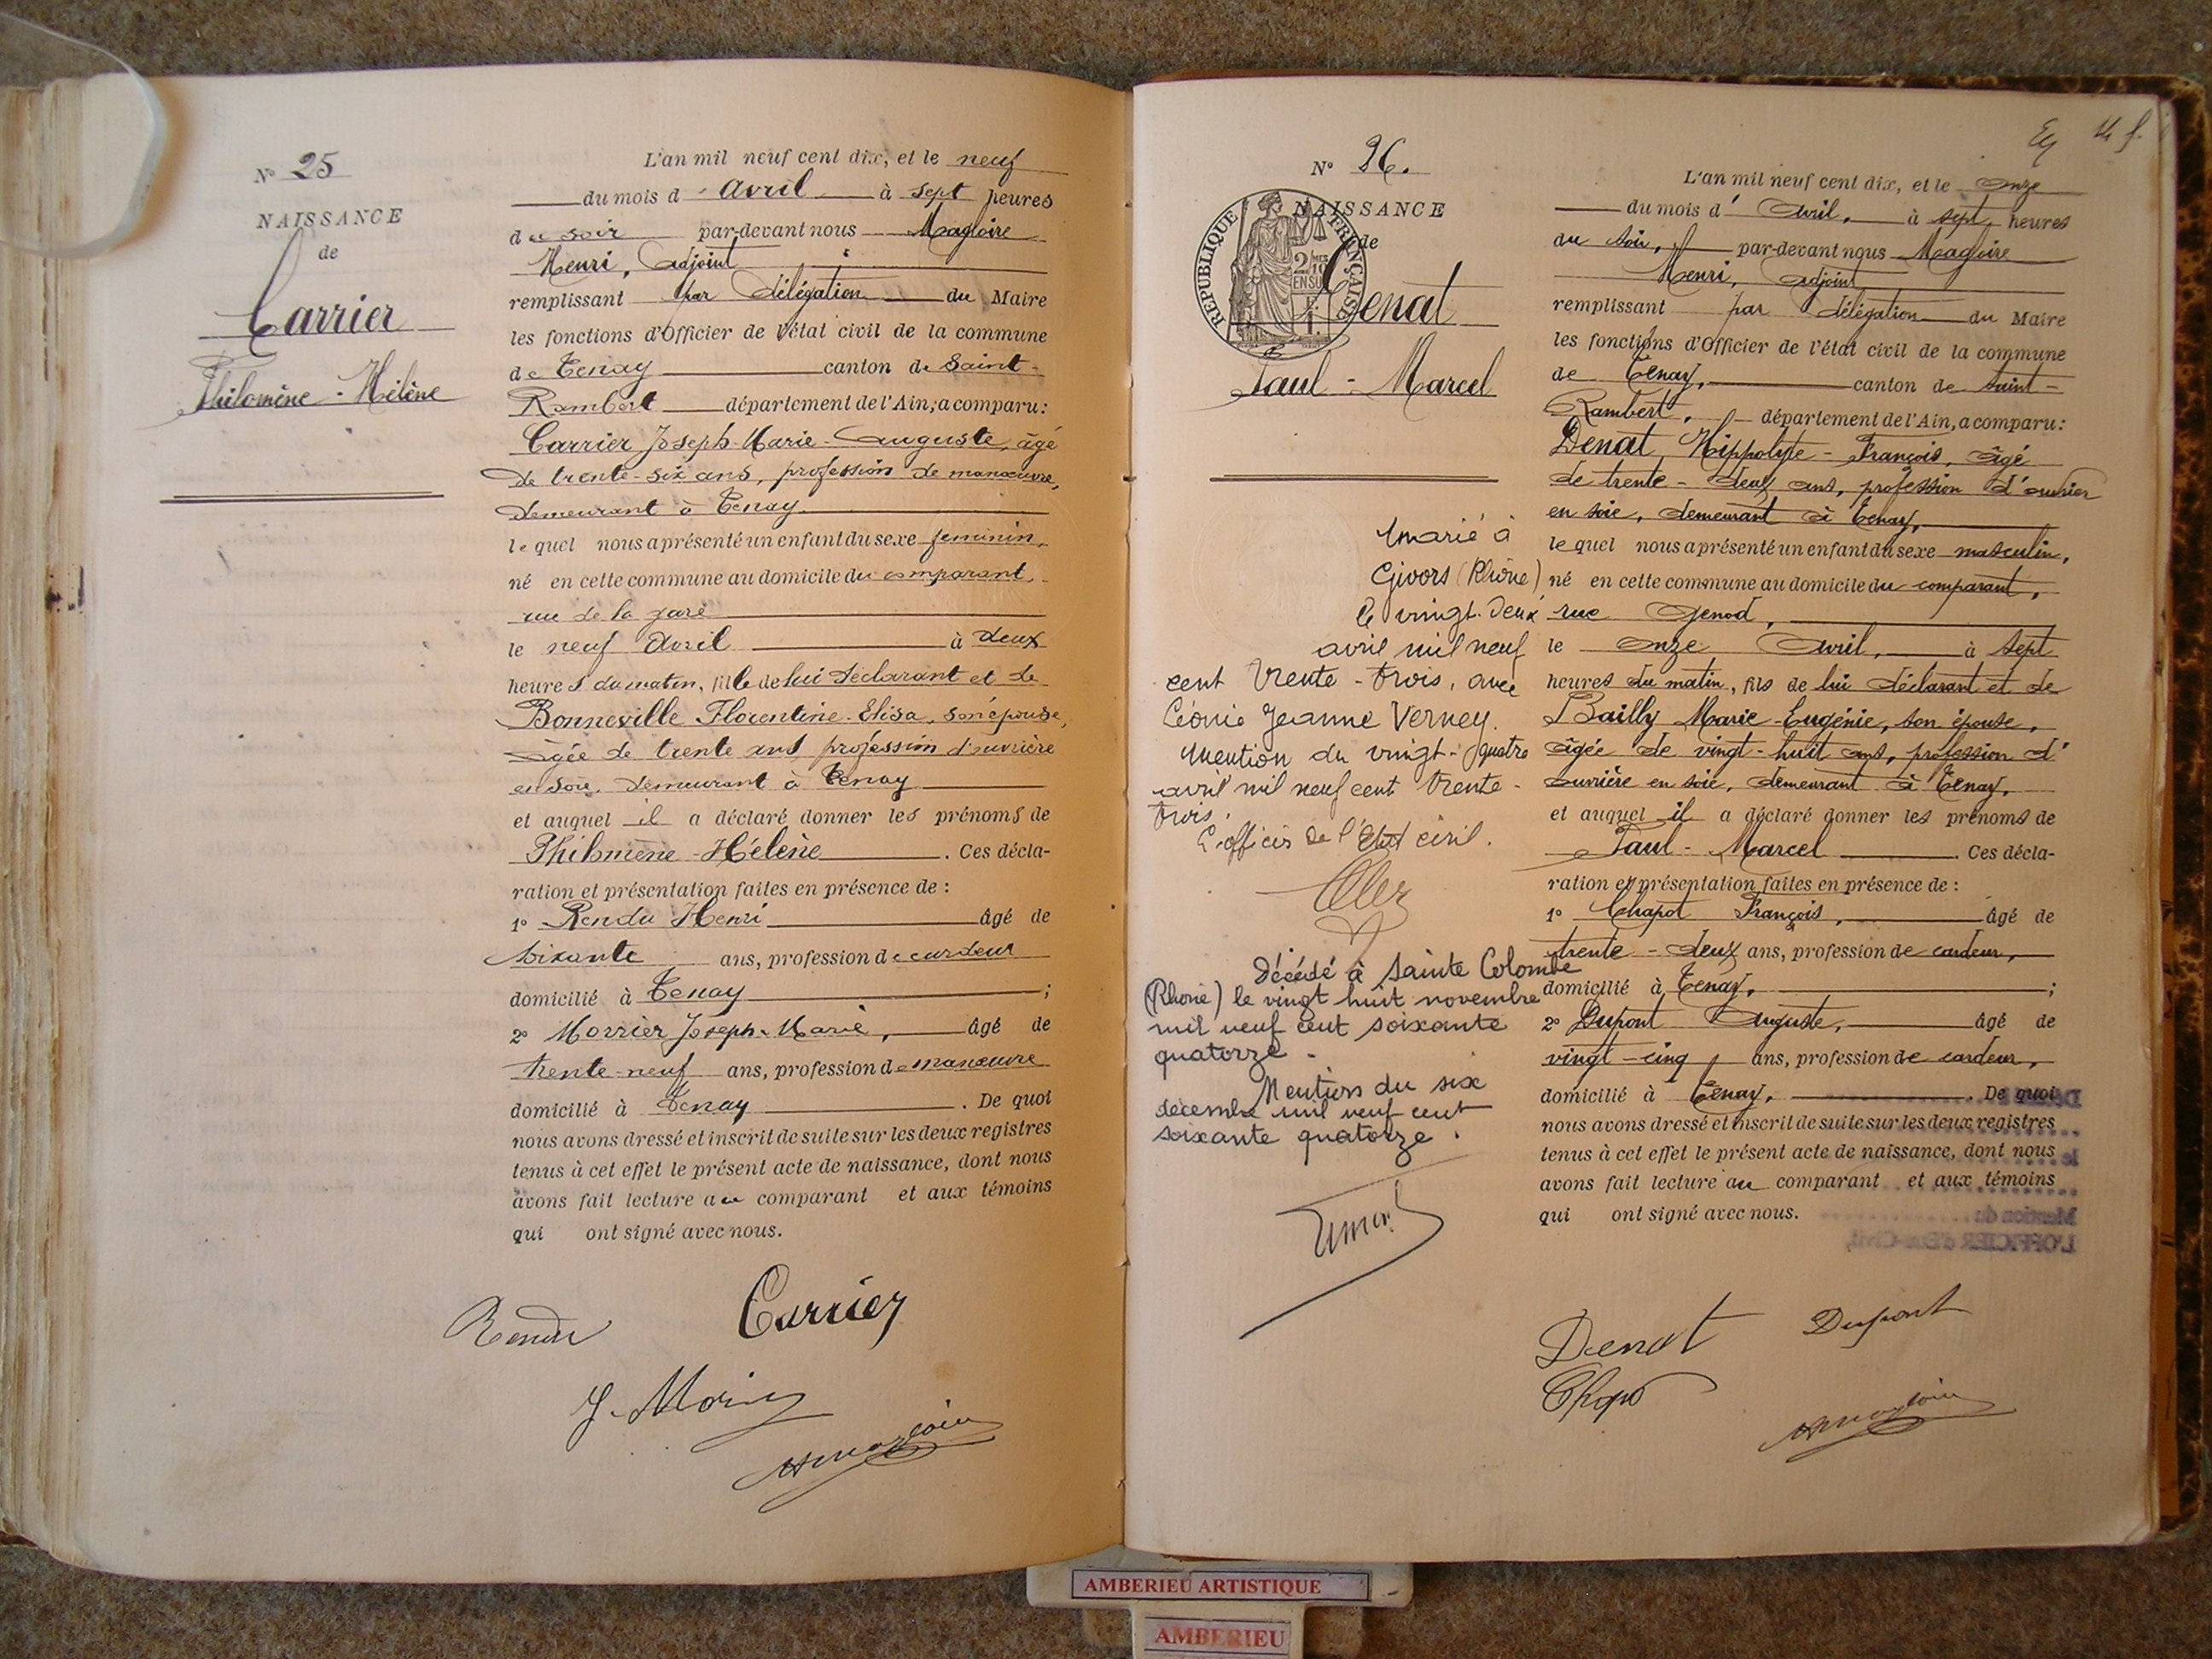 N° 25
NAISSANCE
de
Carrier
Philomène - Hélène
L'an mil neuf cent dix, et le neuf
du mois d' avril à sept heures
du soir par-devant nous Magloire
Henri, adjoint
remplissant par délégation du Maire
les fonctions d'Officier de l'état civil de la commune
de Tenay canton de Saint-
Rambert département de l'Ain, a comparu :
Carrier Joseph-Marie-Auguste, âgé
de trente-six ans, profession de manœuvre,
demeurant à Tenay
lequel nous a présenté un enfant du sexe féminin,
né en cette commune au domicile du comparant,
rue de la gare
le neuf avril à deux
heures du matin, fille de lui déclarant et de
Bonneville Florentine-Elisa, son épouse,
âgée de trente ans, profession d'ouvrière
en soie, demeurant à Tenay
et auquel il a déclaré donner les prénoms de
Philomène-Hélène. Ces décla-
ration et présentation faites en présence de :
1° Rendu Henri âgé de
soixante ans, profession de cardeur
domicilié à Tenay ;
2° Morrier Joseph-Marie, âgé de
trente-neuf ans, profession de manœuvre
domicilié à Tenay. De quoi
nous avons dressé et inscrit de suite sur les deux registres
tenus à cet effet le présent acte de naissance, dont nous
avons fait lecture au comparant et aux témoins
qui ont signé avec nous.
Rendu
Carrier
N° 26.
NAISSANCE
de
RÉPUBLIQUE FRANÇAISE
Denat
Paul - Marcel
marié à
Givors (Rhône)
le vingt-deux
avril mil neuf
cent trente-trois, avec
Léonie Jeanne Verney.
Mention du vingt-quatre
avril mil neuf cent trente-
trois.
L'officier de l'Etat civil.
Décédé à Sainte Colombe
(Rhône) le vingt huit novembre
mil neuf cent soixante
quatorze.
Mention du six
décembre mil neuf cent
soixante quatorze.
L'an mil neuf cent dix, et le onze
du mois d' avril, à sept heures
du soir, par-devant nous Magloire
Henri, adjoint
remplissant par délégation du Maire
les fonctions d'Officier de l'état civil de la commune
de Tenay, canton de Saint-
Rambert, département de l'Ain, a comparu :
Denat Hippolyte-François, âgé
de trente-deux ans, profession d'ouvrier
en soie, demeurant à Tenay,
lequel nous a présenté un enfant du sexe masculin,
né en cette commune au domicile du comparant,
rue Genod,
le onze avril, à sept
heures du matin, fils de lui déclarant et de
Bailly Marie-Eugénie, son épouse,
âgée de vingt-huit ans, profession d'
ouvrière en soie, demeurant à Tenay,
et auquel il a déclaré donner les prénoms de
Paul-Marcel. Ces décla-
ration et présentation faites en présence de :
1° Chapot François, âgé de
trente-deux ans, profession de cardeur,
domicilié à Tenay, ;
2° Dupont Auguste, âgé de
vingt-cinq ans, profession de cardeur,
domicilié à Tenay. De quoi
nous avons dressé et inscrit de suite sur les deux registres
tenus à cet effet le présent acte de naissance, dont nous
avons fait lecture au comparant et aux témoins
qui ont signé avec nous.
Denat
Dupont
AMBERIEU ARTISTIQUE
AMBERIEU